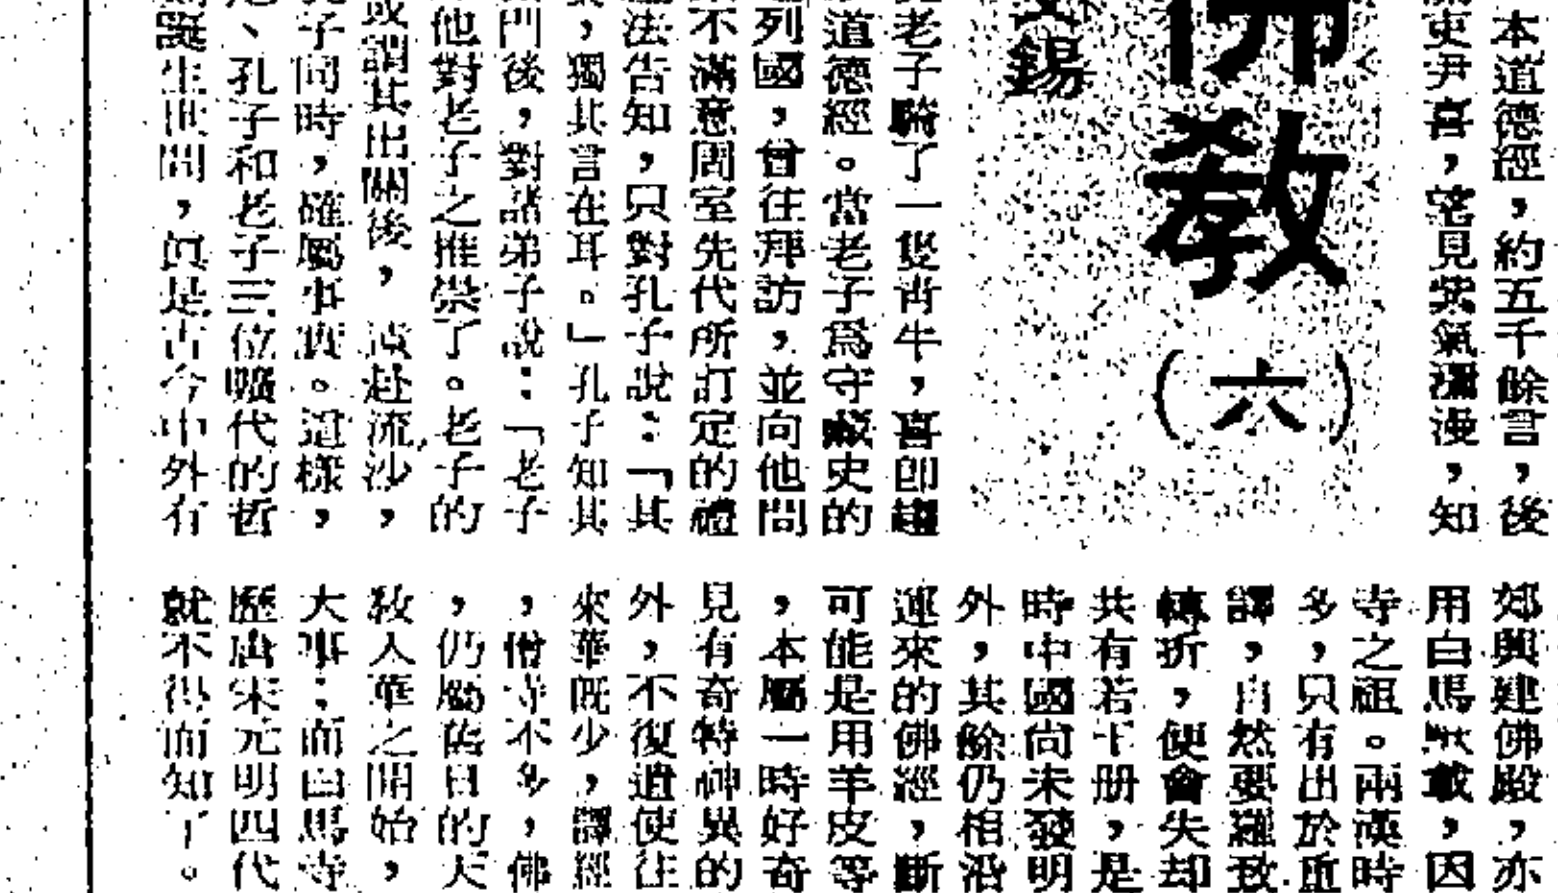 本道德經,約五千餘言,後
吏尹喜,望見紫氣瀰漫,知
佛教(六)
錫
老子騎了一隻青牛,喜卽趨
道德經。當老子爲守藏史的
列國,曾往拜訪,並向他問
不滿意周室先代所訂定的禮
法告知,只對孔子說:「其
,獨其言在耳。」孔子知其
門後,對諸弟子說:「老子
他對老子之推崇了。老子的
或謂其出關後,遠赴流沙,
子同時,確屬事實。這樣,
、孔子和老子三位曠代的哲
誕生世間,眞是古今中外有
郊興建佛殿,亦
用白馬馱載,因
寺之祖。兩漢時
多,只有出於重
譯,自然要羅致
轉折,便會失却
共有若干册,是
時中國尙未發明
外,其餘仍相沿
運來的佛經,斷
可能是用羊皮等
,本屬一時好奇
見有奇特神異的
外,不復遣使往
來華旣少,譯經
,僧寺不多,佛
,仍屬舊日的天
敎入華之開始,
大事;而白馬寺
歷唐宋元明四代
就不得而知了。